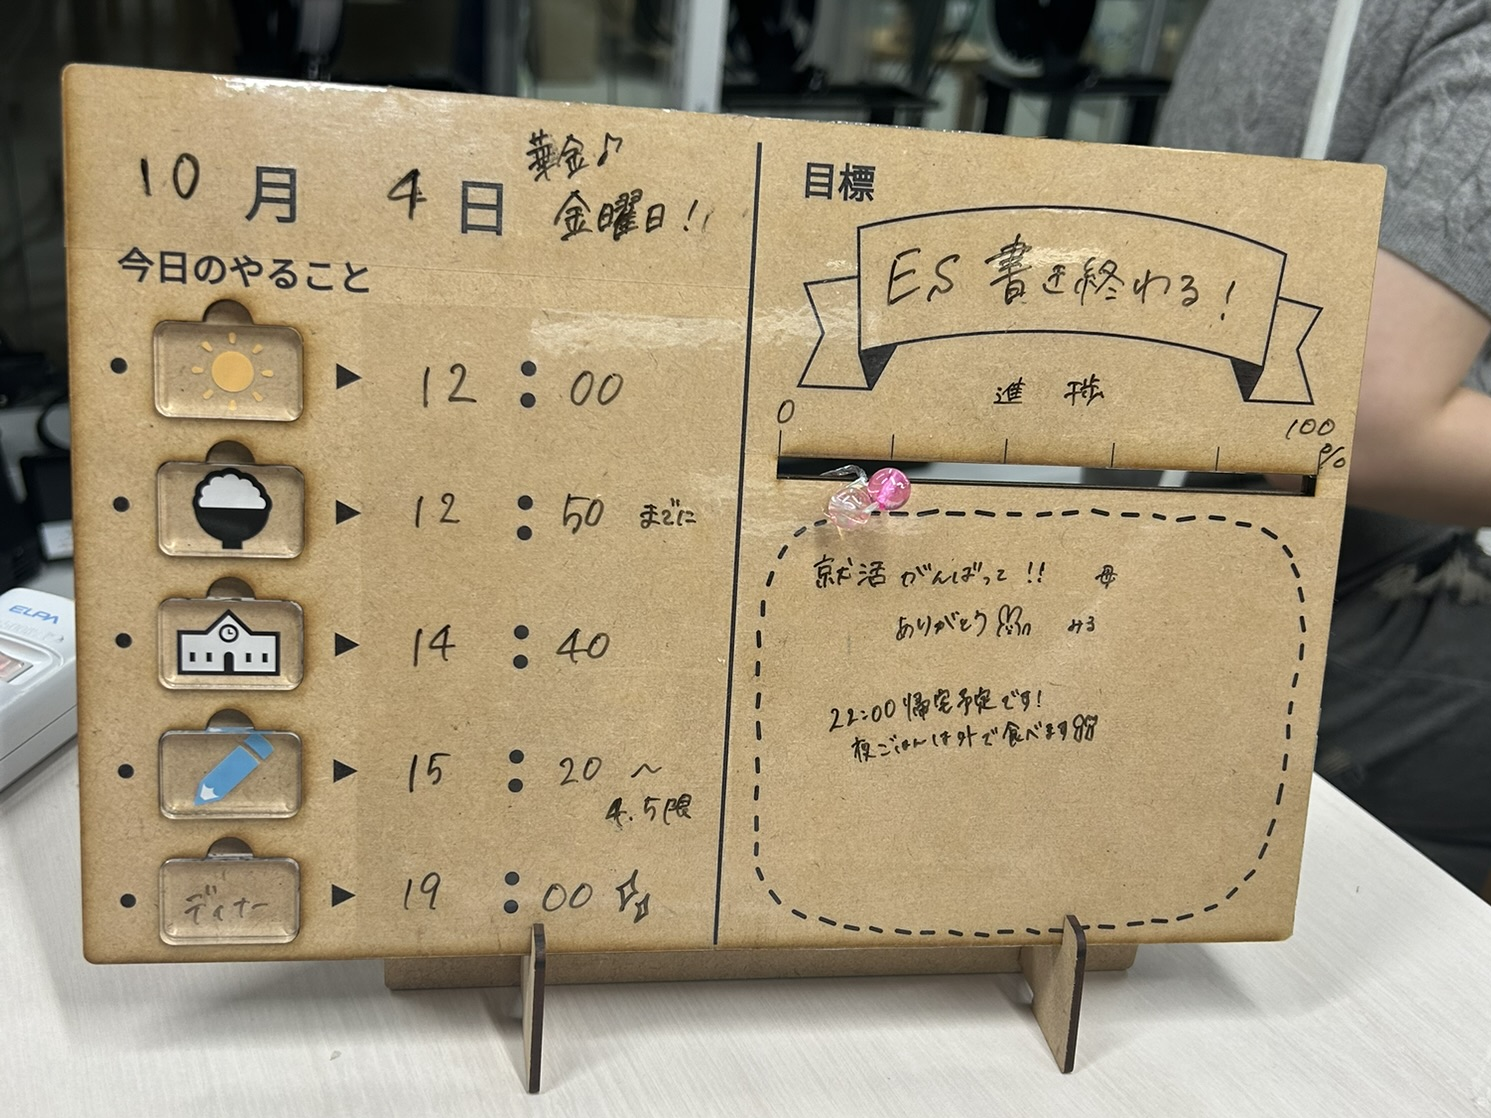 10月 4日 華金♪
金曜日!!
今日のやること
12:00
12:50 までに
14:40
15:20〜
4.5限
ディナー 19:00
目標
ES 書き終わる!
進捗
0 100
%
就活がんばって!! 母
ありがとう みる
22:00 帰宅予定です!
夜ごはんは外で食べます
ELPA